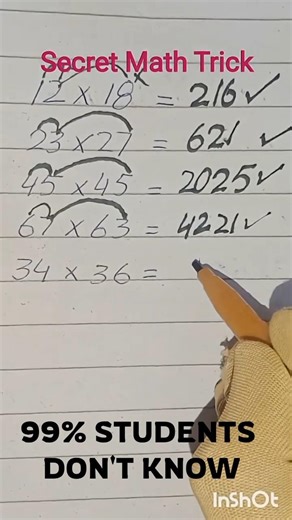 Secret Math Trick
12 x 18 = 216 ✓
23 x 27 = 621 ✓
45 x 45 = 2025 ✓
67 x 63 = 4221 ✓
34 x 36 =
99% STUDENTS
DON'T KNOW
InShOt